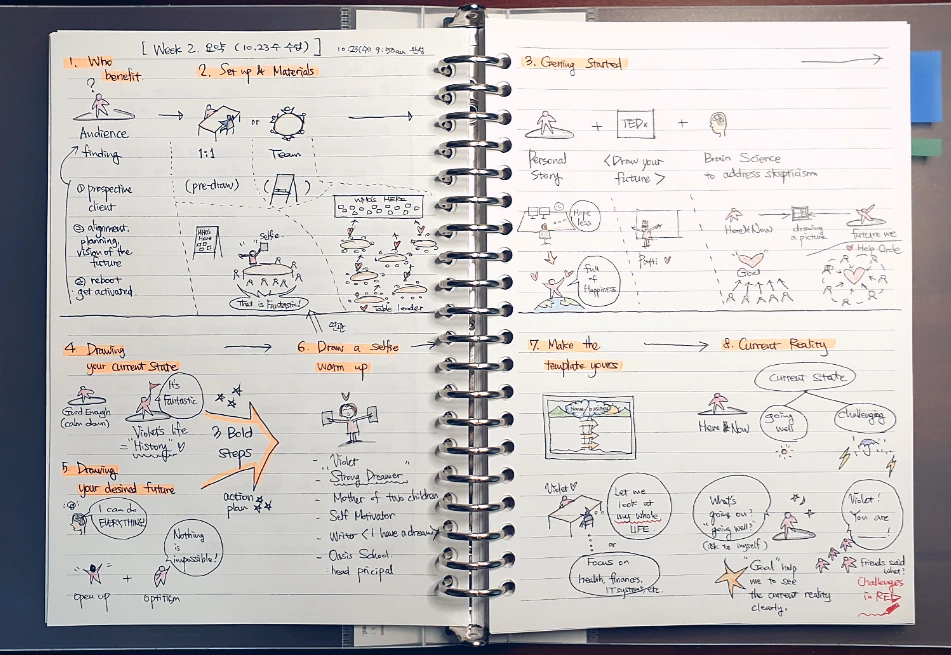 [ Week 2. 요약 (10.23수 수업) ]
1. Who
benefit
?
Audience
finding
① prospective
client
② alignment.
planning,
vision of the
future
③ reboot
get activated
2. Set up & Materials
or
1:1
Team
(pre-draw)
WHO'S HERE
WHO's
Here
Selfie
That is Fantastic!
Table leader
3. Getting Started
+ TEDx +
Personal
Story
<Draw your
future>
Brain Science
to address skepticism
Hope
less
Full
of
Happiness
Patti ♡
Here & Now
drawing
a picture
future me
Goal
Help Circle
4. Drawing
your current state
Good Enough
(calm down)
It's
Fantastic
Violet's life
= "History" ♡
5. Drawing
your desired future
I can do
EVERYTHING!
Nothing
is
impossible!
open up
+
optitism
3 Bold
steps
action
plan
6. Draw a selfie
warm up
- Violet
- "Strong Dreamer"
- Mother of two children
- Self Motivator
- Writer <I have a dream>
- Oasis School.
- head pricipal
7. Make the
template yours
home/business
Violet ♡
Let me
look at
my whole
LIFE
or
Focus on
health, finances,
IT system, etc.
8. Current Reality
Current State
Here & Now
going
well
challenging
What's
going on?
"going well?"
(ask to myself)
Violet!
You are
___!
Friends said
what?
"Goal" help
me to see
the current reality
clearly.
Challenges
in RED